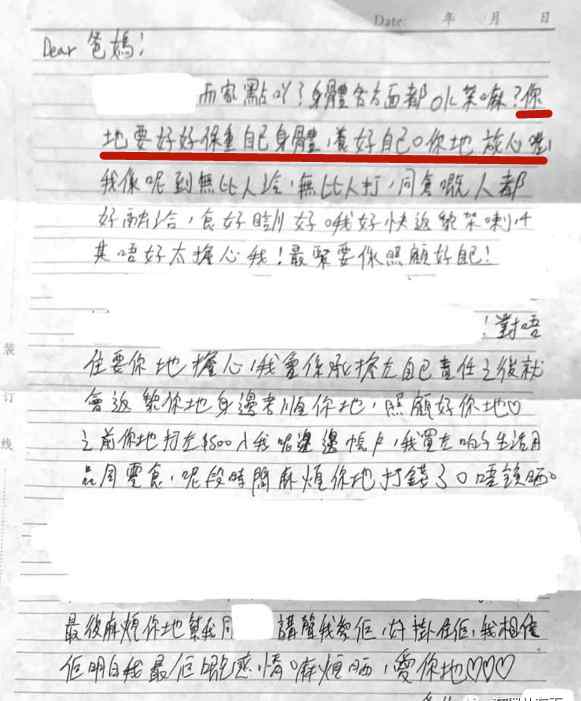 Date: 年 月 日
Dear 爸媽!
而家點吖?身體各方面都ok架嘛?你
地要好好保重自己身體,養好自己。你地放心嘅,
我係呢到無比人蝦,無比人打,同倉嘅人都
好融洽,食好瞓好。我好快返黎架喇!
其 唔好太擔心我!最緊要你照顧好自己!
!對唔
住要你地擔心,我會係承擔左自己責任之後就
會返黎你地身邊孝順你地,照顧好你地♡
之前你地打左$500入我呢邊 帳戶,我買左 生活用
品同零食,呢段時間麻煩你地打錢了。唔該晒。
最後麻煩你地幫我同 講聲我愛佢,好掛住佢,我相信
佢明白我 最佢嘅感情。麻煩晒,愛你地♡♡♡
裝
訂
线